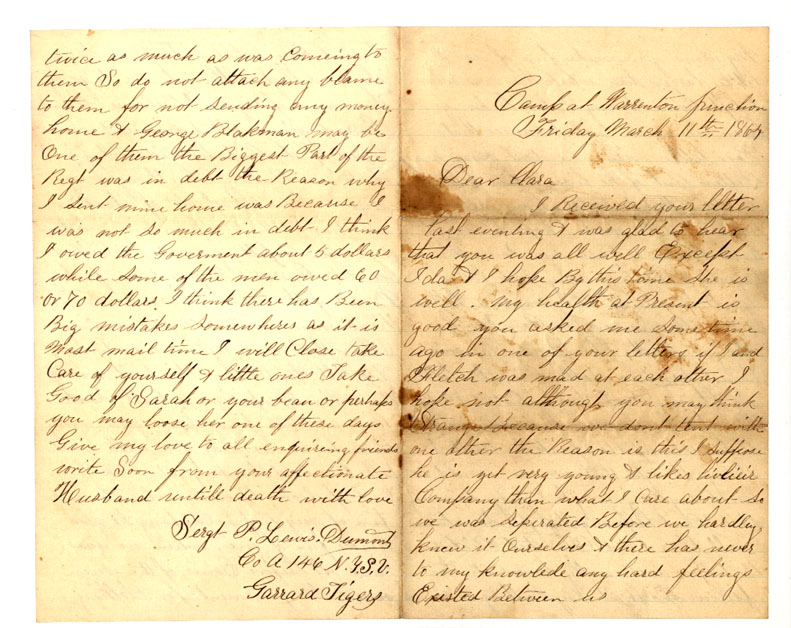 Camp at Warrenton junction
Friday March 11th 1864
Dear Clara
I Received your letter
last evening & was glad to hear
that you was all well Except
Ida & I hope By this time She is
well. My health at Present is
good you asked me Sometime
ago in one of your letters if I and
Fletch was mad at each other I
hope not although you may think
Strange because we dont tent with
one other the Reason is this I suppose
he is yet very young & likes livlieir
Company than what I Care about So
we was Seperated Before we hardley
knew it Ourselves & there has never
to my knowlede any hard feelings
Existed Between us
twice as much as was Comeing to
them So do not attach any blame
to them for not Sending any money
home & George Blakman may be
One of them the Biggest Part of the
Regt was in debt the Reason why
I Sent mine home was Because I
was not so much in debt I think
I owed the Goverment about 5 dollars
while Some of the men owed 60
or 70 dollars I think there has Been
Big mistakes Somewheres as it is
Most mail time I will Close take
Care of yourself & little ones Take
Good of Sarah or your beau or perhaps
you may loose her one of these days
Give my love to all enquireing friends
write Soon from your affectionate
Husband untill death with love
Sergt P. Lewis. Dumont
Co A 146 N.Y.S.V.
Garrard Tigers